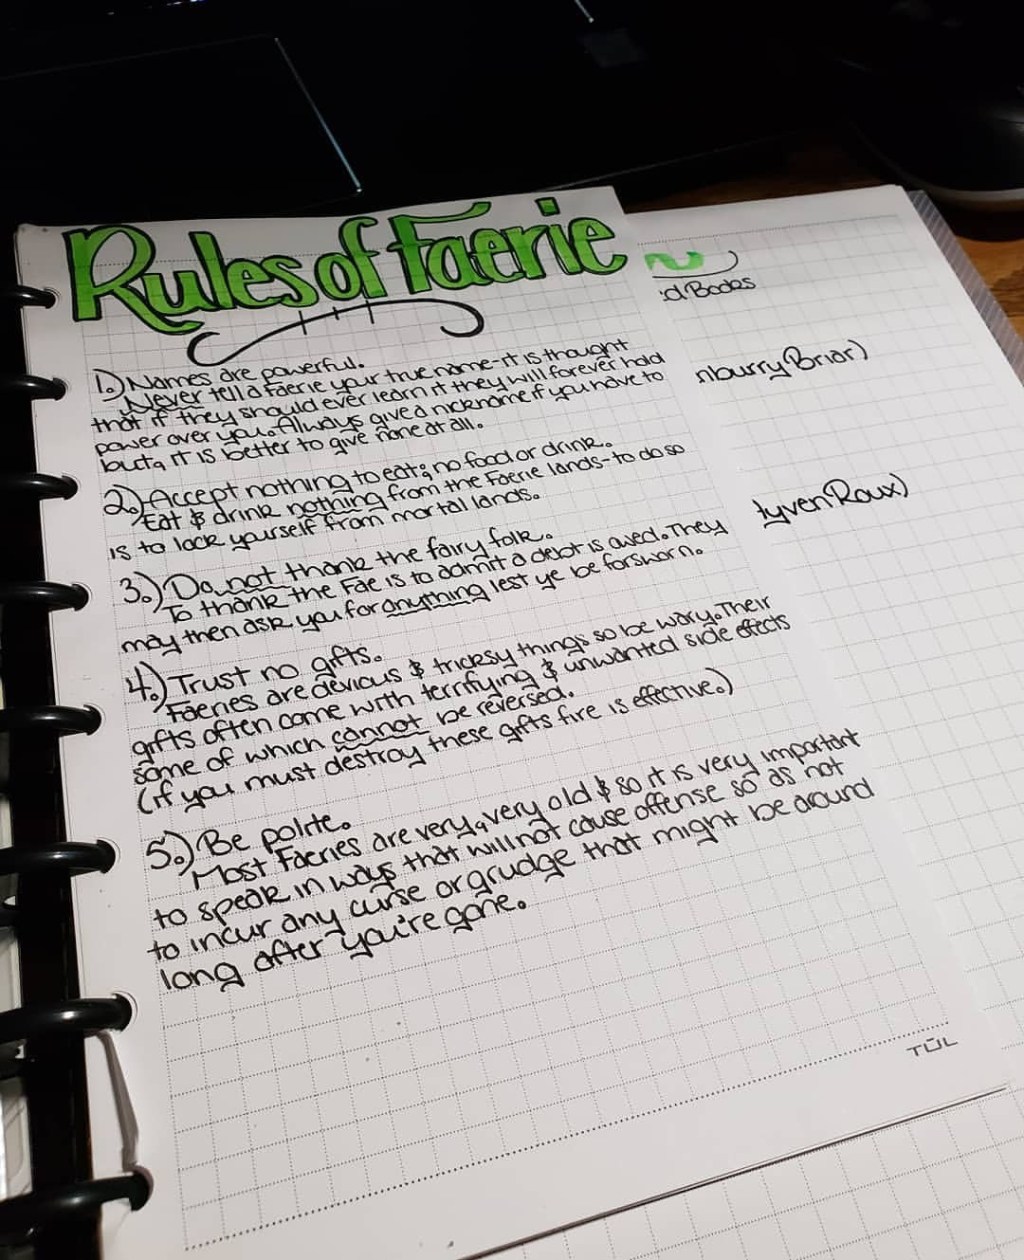 Rules of Faerie
1.) Names are powerful.
Never tell a Faerie your true name-it is thought
that if they should ever learn it they will forever hold
power over you. Always give a nickname if you have to
but, it is better to give none at all.
2.) Accept nothing to eat; no food or drink.
Eat & drink nothing from the Faerie lands-to do so
is to lock yourself from mortal lands.
3.) Do not thank the fairy folk.
To thank the Fae is to admit a debt is owed. They
may then ask you for anything lest ye be forsworn.
4.) Trust no gifts.
Faeries are devious & tricksy things so be wary. Their
gifts often come with terrifying & unwanted side effects
some of which cannot be reversed.
(if you must destroy these gifts fire is effective.)
5.) Be polite.
Most Faeries are very, very old & so it is very important
to speak in ways that will not cause offense so as not
to incur any curse or grudge that might be around
long after you're gone.
TŪL
d Books
nburry Briar)
tyven Roux)